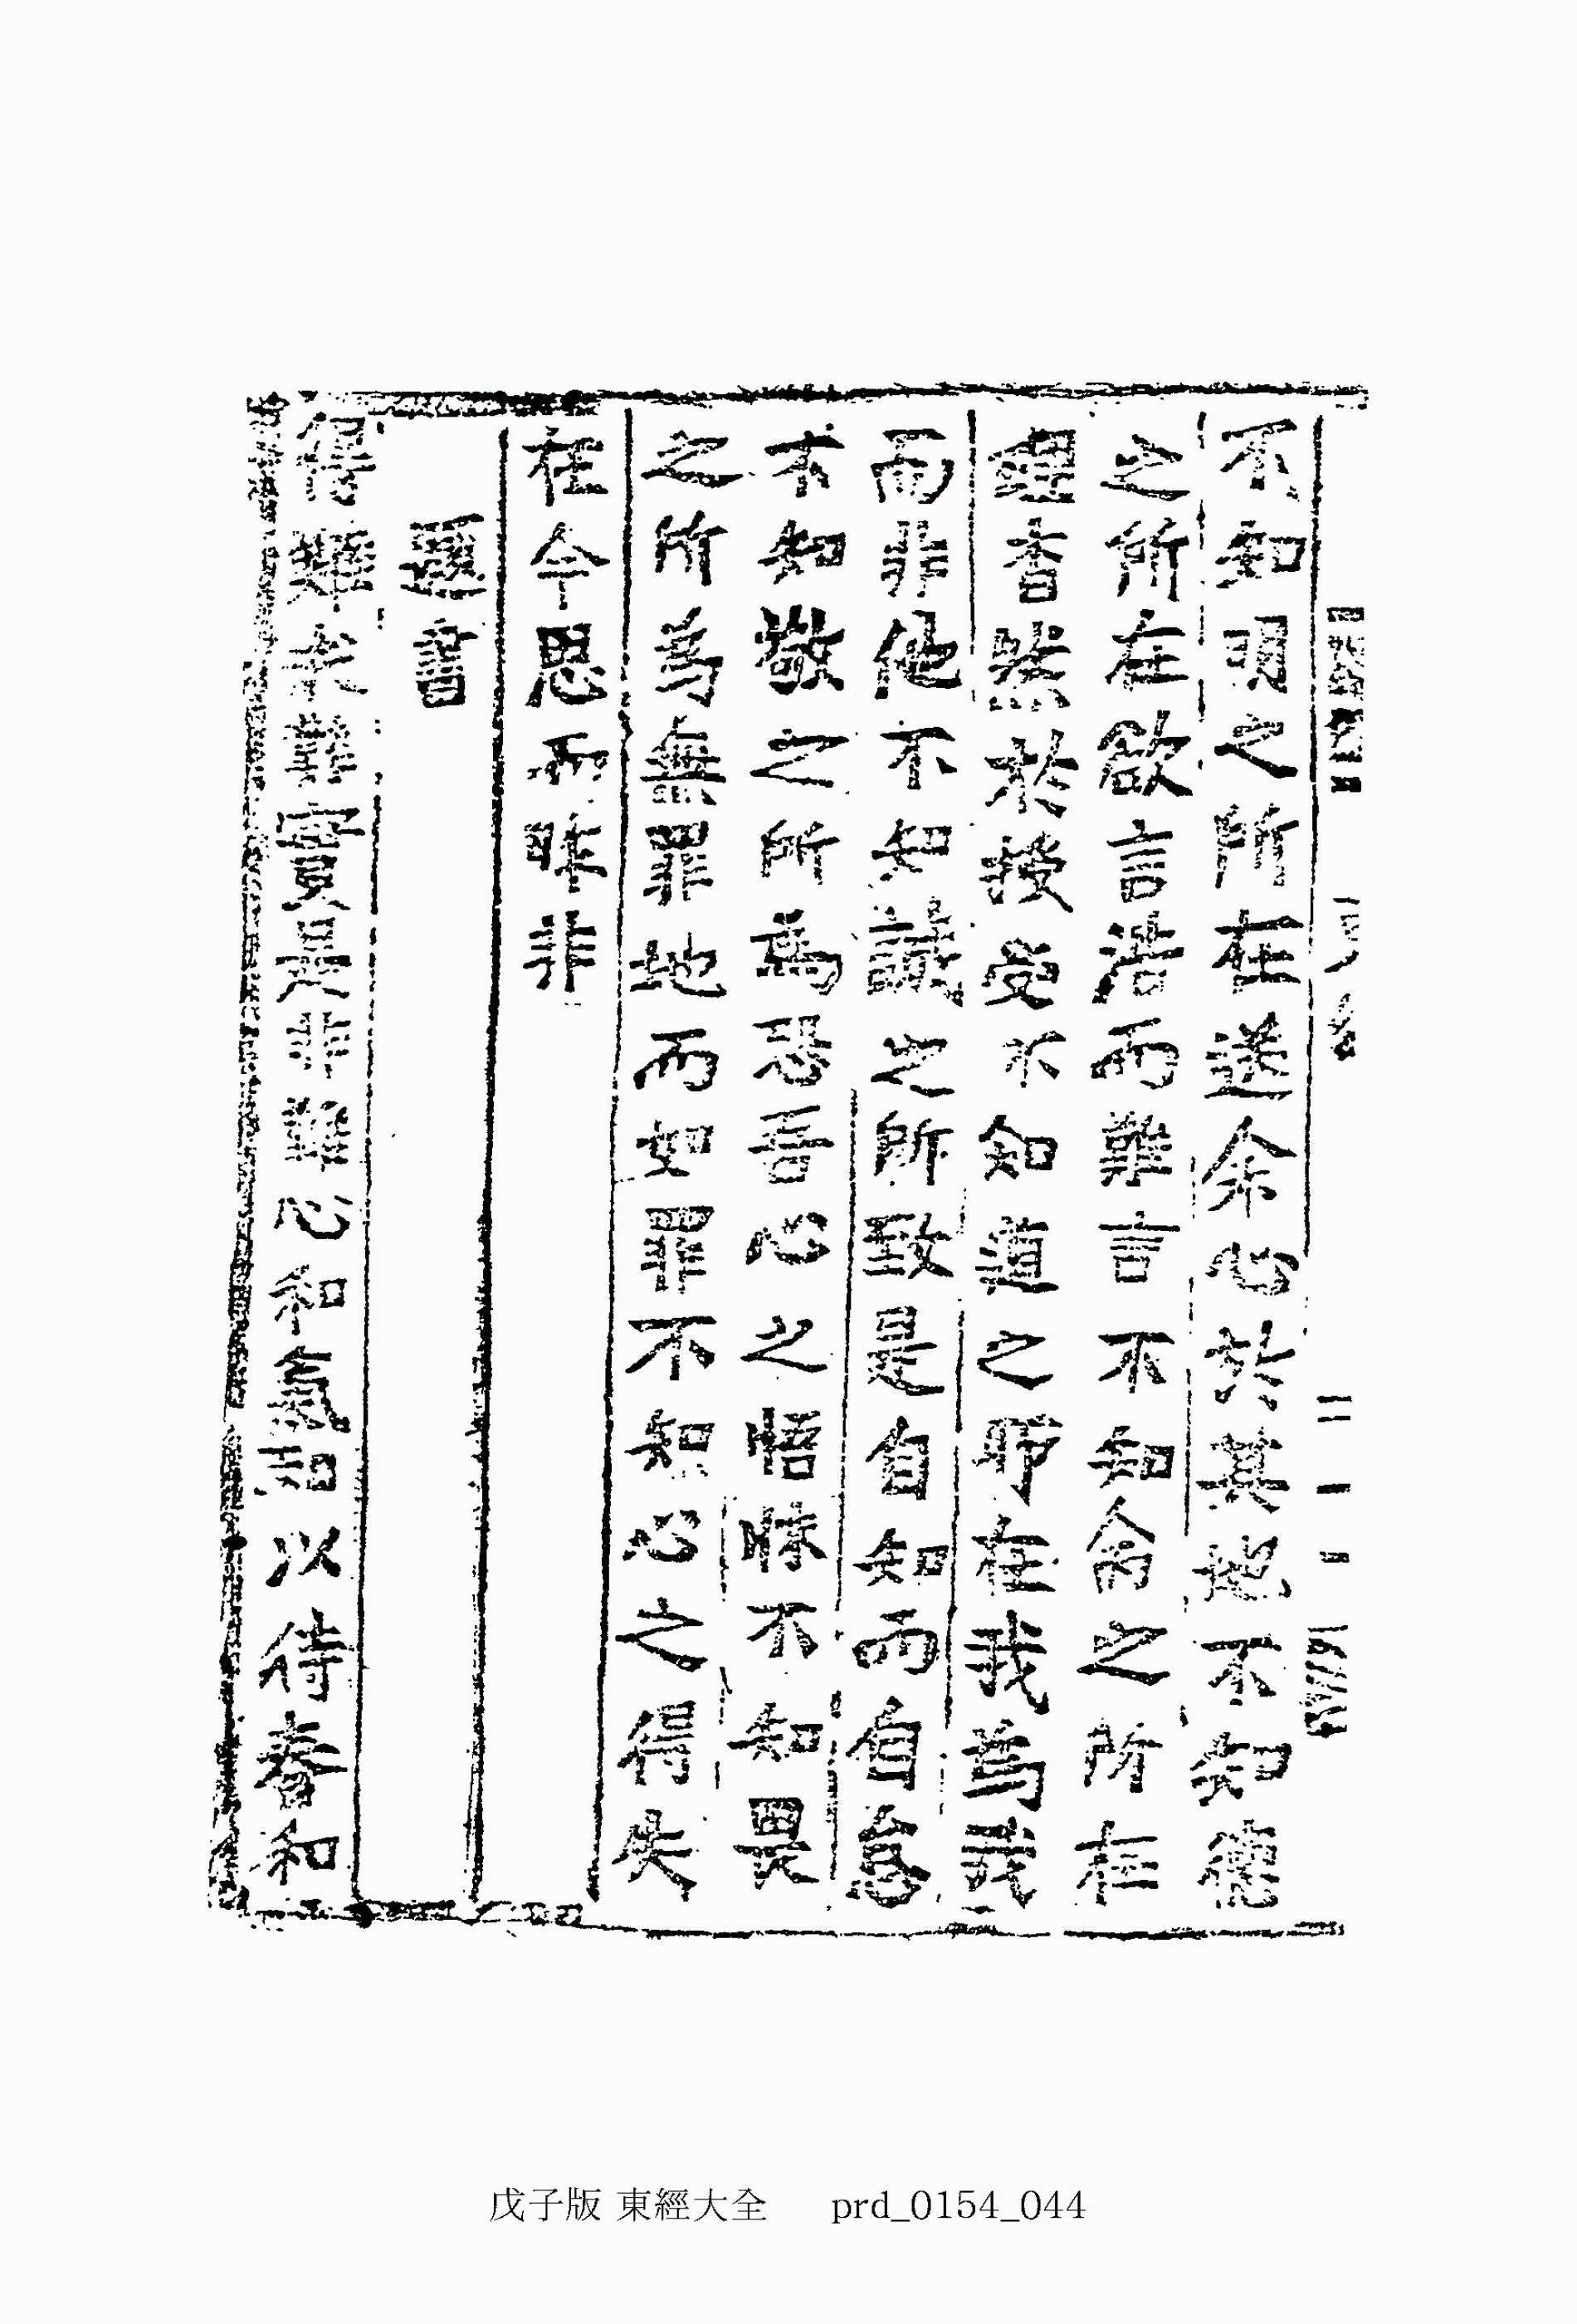 不知明之所在送余心於其地不知德
之所在欲言浩而難言不知命之所在
理杳然於授受不知道之所在我爲我
而非他不知誠之所致是自知而自怠
不知敬之所爲恐吾心之悟昧不知畏
之所爲無罪地而如罪不知心之得失
在今思而昨非
題書
得難求難實是非難心和氣和以待春和
戊子版 東經大全 prd_0154_044